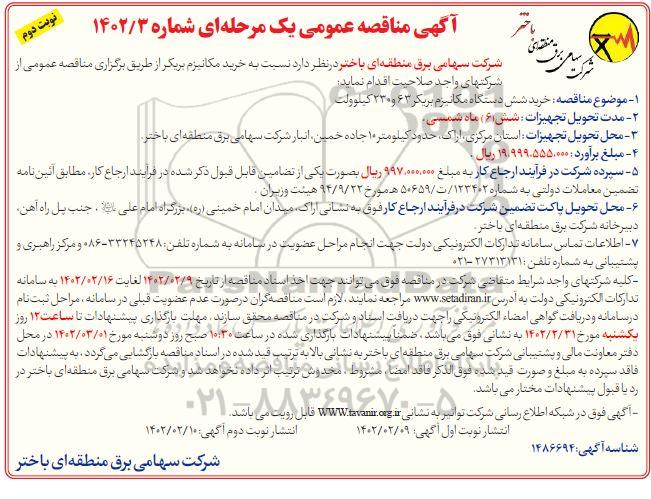 نوبت دوم
آگهی مناقصه عمومی یک مرحله‌ای شماره ۱۴۰۲/۳
شرکت سهامی برق منطقه‌ای باختر
شرکت سهامی برق منطقه‌ای باختر درنظر دارد نسبت به خرید مکانیزم بریکر از طریق برگزاری مناقصه عمومی از
شرکتهای واجد صلاحیت اقدام نماید:
۱- موضوع مناقصه: خرید شش دستگاه مکانیزم بریکر ۶۳ و ۲۳۰ کیلوولت
۲- مدت تحویل تجهیزات: شش (۶) ماه شمسی.
۳- محل تحویل تجهیزات: استان مرکزی، اراک، حدود کیلومتر ۱۰ جاده خمین، انبار شرکت سهامی برق منطقه‌ای باختر.
۴- مبلغ برآورد: ۱۹،۹۹۹،۵۵۵،۰۰۰ ریال.
۵- سپرده شرکت در فرآیند ارجاع کار به مبلغ ۹۹۷،۰۰۰،۰۰۰ ریال بصورت یکی از تضامین قابل قبول ذکر شده در فرآیند ارجاع کار، مطابق آئین‌نامه
تضمین معاملات دولتی به شماره ۱۲۳۴۰۲/ت/۵۰۶۵۹ هـ مورخ ۹۴/۹/۲۲ هیئت وزیران.
۶- محل تحویل پاکت تضمین شرکت درفرآیند ارجاع کار فوق به نشانی اراک، میدان امام خمینی (ره)، بزرگراه امام علی، جنب پل راه آهن،
دبیرخانه شرکت برق منطقه‌ای باختر.
۷- اطلاعات تماس سامانه تدارکات الکترونیکی دولت جهت انجام مراحل عضویت در سامانه به شماره تلفن: ۳۳۲۴۵۲۴۸-۰۸۶ و مرکز راهبری و
پشتیبانی به شماره تلفن: ۲۷۳۱۳۱۳۱-۰۲۱
-کلیه شرکتهای واجد شرایط متقاضی شرکت در مناقصه فوق می توانند جهت اخذ اسناد مناقصه از تاریخ ۱۴۰۲/۰۲/۹ لغایت ۱۴۰۲/۰۲/۱۶ به سامانه
تدارکات الکترونیکی دولت به آدرس www.setadiran.ir مراجعه نمایند، لازم است مناقصه‌گران درصورت عدم عضویت قبلی در سامانه، مراحل ثبت نام
در سامانه و دریافت گواهی امضاء الکترونیکی را جهت دریافت اسناد و شرکت در مناقصه محقق سازند. مهلت بازگذاری پیشنهادات تا ساعت ۱۲ روز
یکشنبه مورخ ۱۴۰۲/۲/۳۱ به نشانی فوق می‌باشد. ضمنا پیشنهادات بازگذاری شده در ساعت ۱۰:۳۰ صبح روز دوشنبه مورخ ۱۴۰۲/۰۳/۰۱ در محل
دفتر معاونت مالی و پشتیبانی شرکت سهامی برق منطقه‌ای باختر به نشانی بالا به ترتیب قید شده در اسناد مناقصه بازگشایی می‌گردد، به پیشنهادات
فاقد سپرده به مبلغ و صورت قید شده فوق الذکر، فاقد امضا، مشروط، مخدوش ترتیب اثر داده نخواهد شد و شرکت سهامی برق منطقه‌ای باختر در
رد یا قبول پیشنهادات مختار می باشد.
-آگهی فوق در شبکه اطلاع رسانی شرکت توانیر به نشانی WWW.tavanir.org.ir قابل رویت می باشد.
انتشار نوبت اول آگهی: ۱۴۰۲/۰۲/۰۹ انتشار نوبت دوم آگهی: ۱۴۰۲/۰۲/۱۰
شناسه آگهی: ۱۴۸۶۶۹۴
شرکت سهامی برق منطقه‌ای باختر
۰۲۱-۸۸۳۴۹۶۷۰-۵